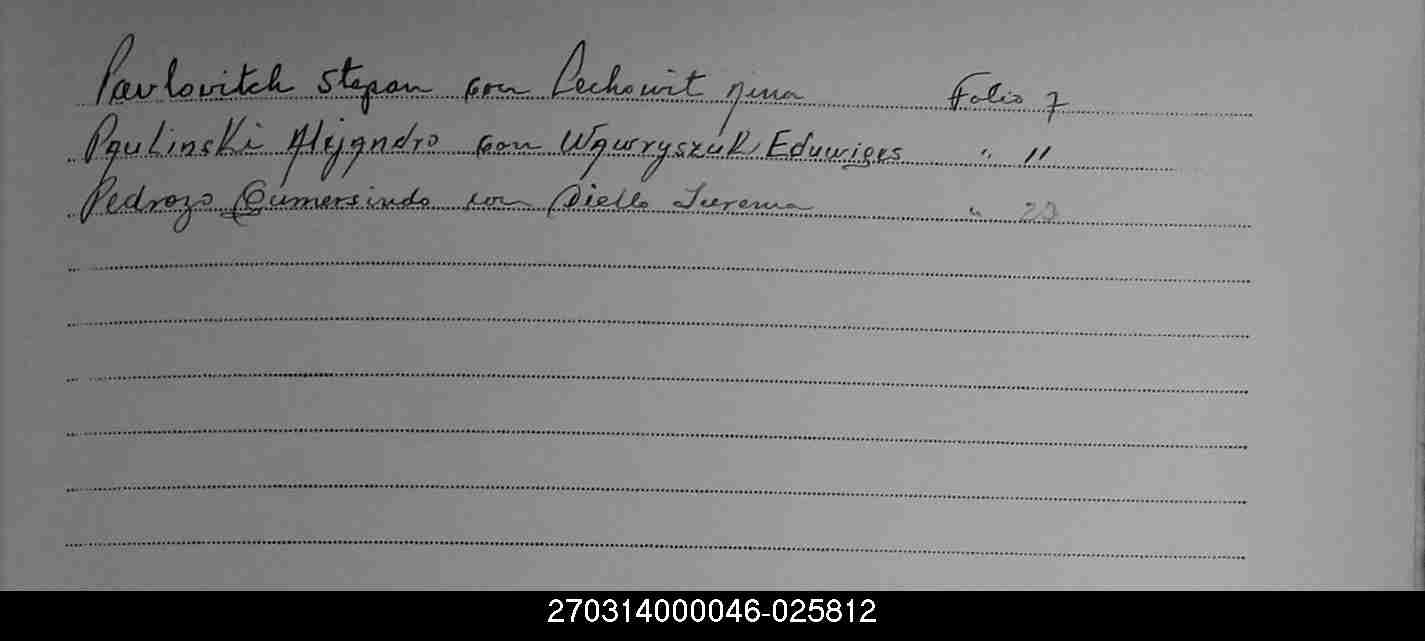 Pavlovitch Stepan con Lechowit Nina Folio 7
Paulinski Alejandro con Wawryszuk Eduwiges " 11
Pedrozo Gumersindo con Diello " 20
270314000046-025812